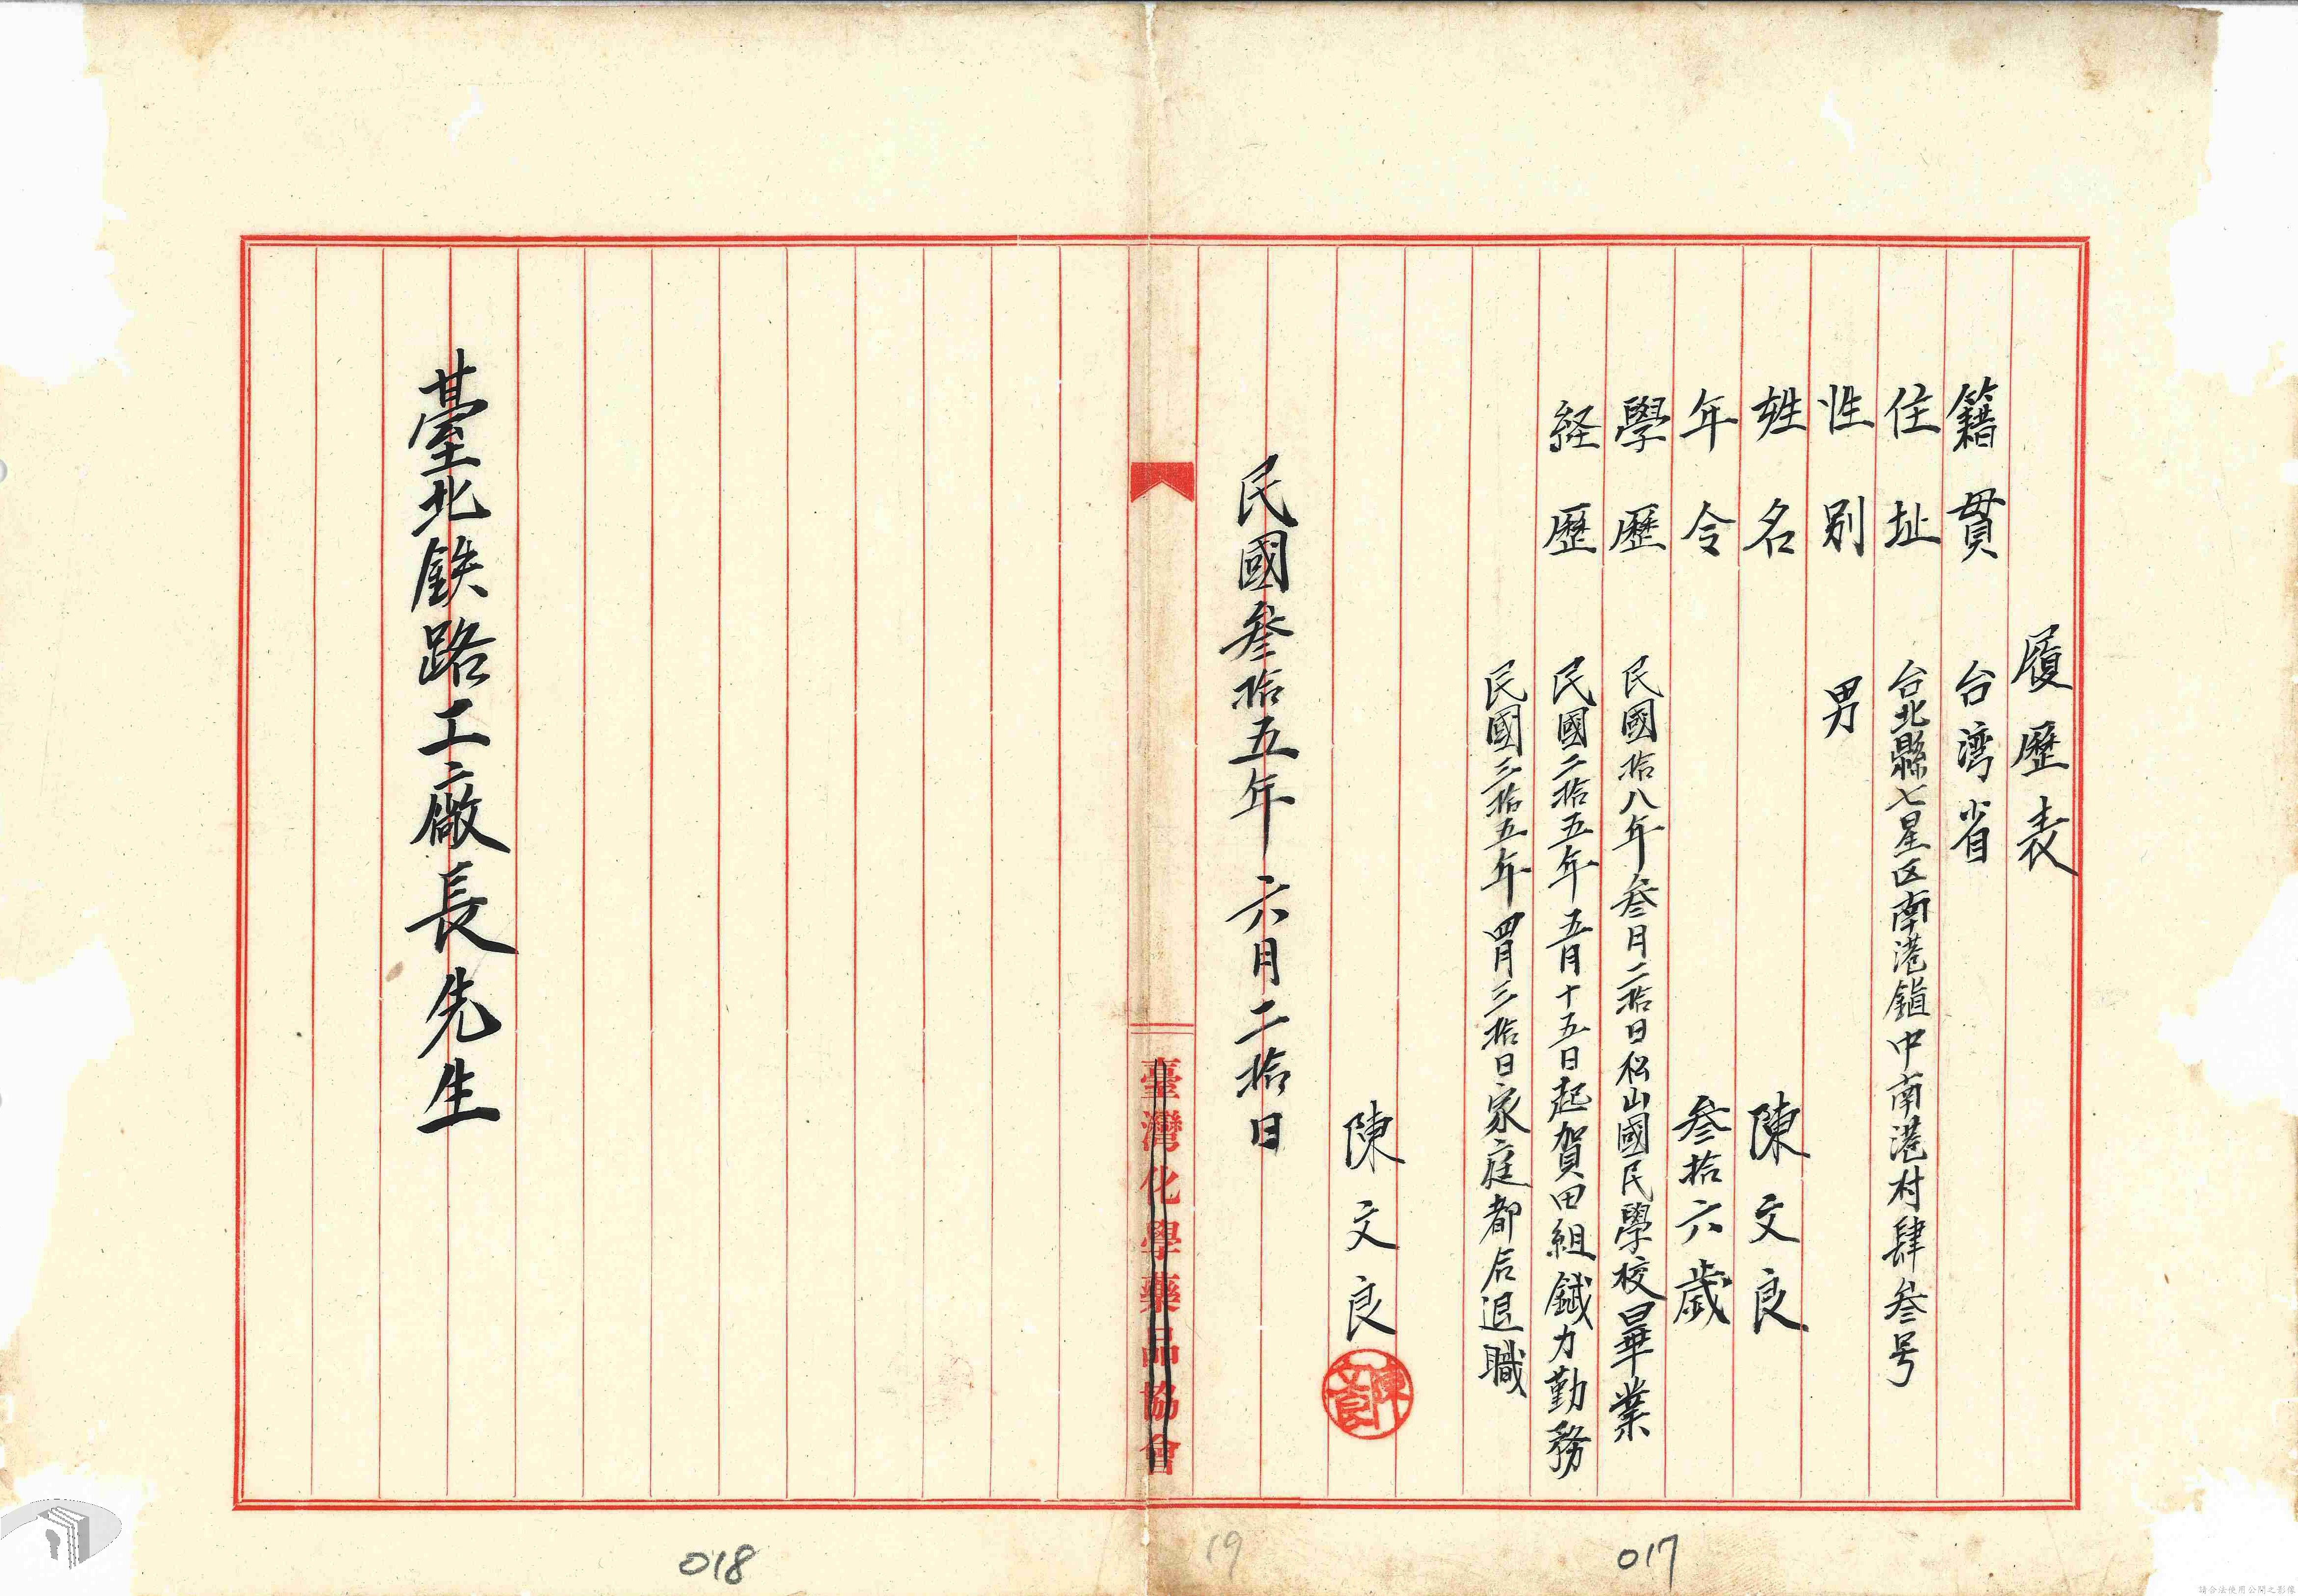 履歷表
籍貫 台湾省
住址 台北縣七星区南港鎮中南港村肆叁号
性別 男
姓名 陳文良
年令 叁拾六歲
學歷 民國拾八年叁月二拾日松山國民學校畢業
経歷 民國二拾五年五月十五日起賀田組鐵力勤務
民國三拾五年四月三拾日家庭都后退職
陳文良
陳文良
民國叁拾五年六月二拾日
臺灣化學藥品協會
臺北鉄路工廠長先生
017
19
018
請合法使用公開之影像